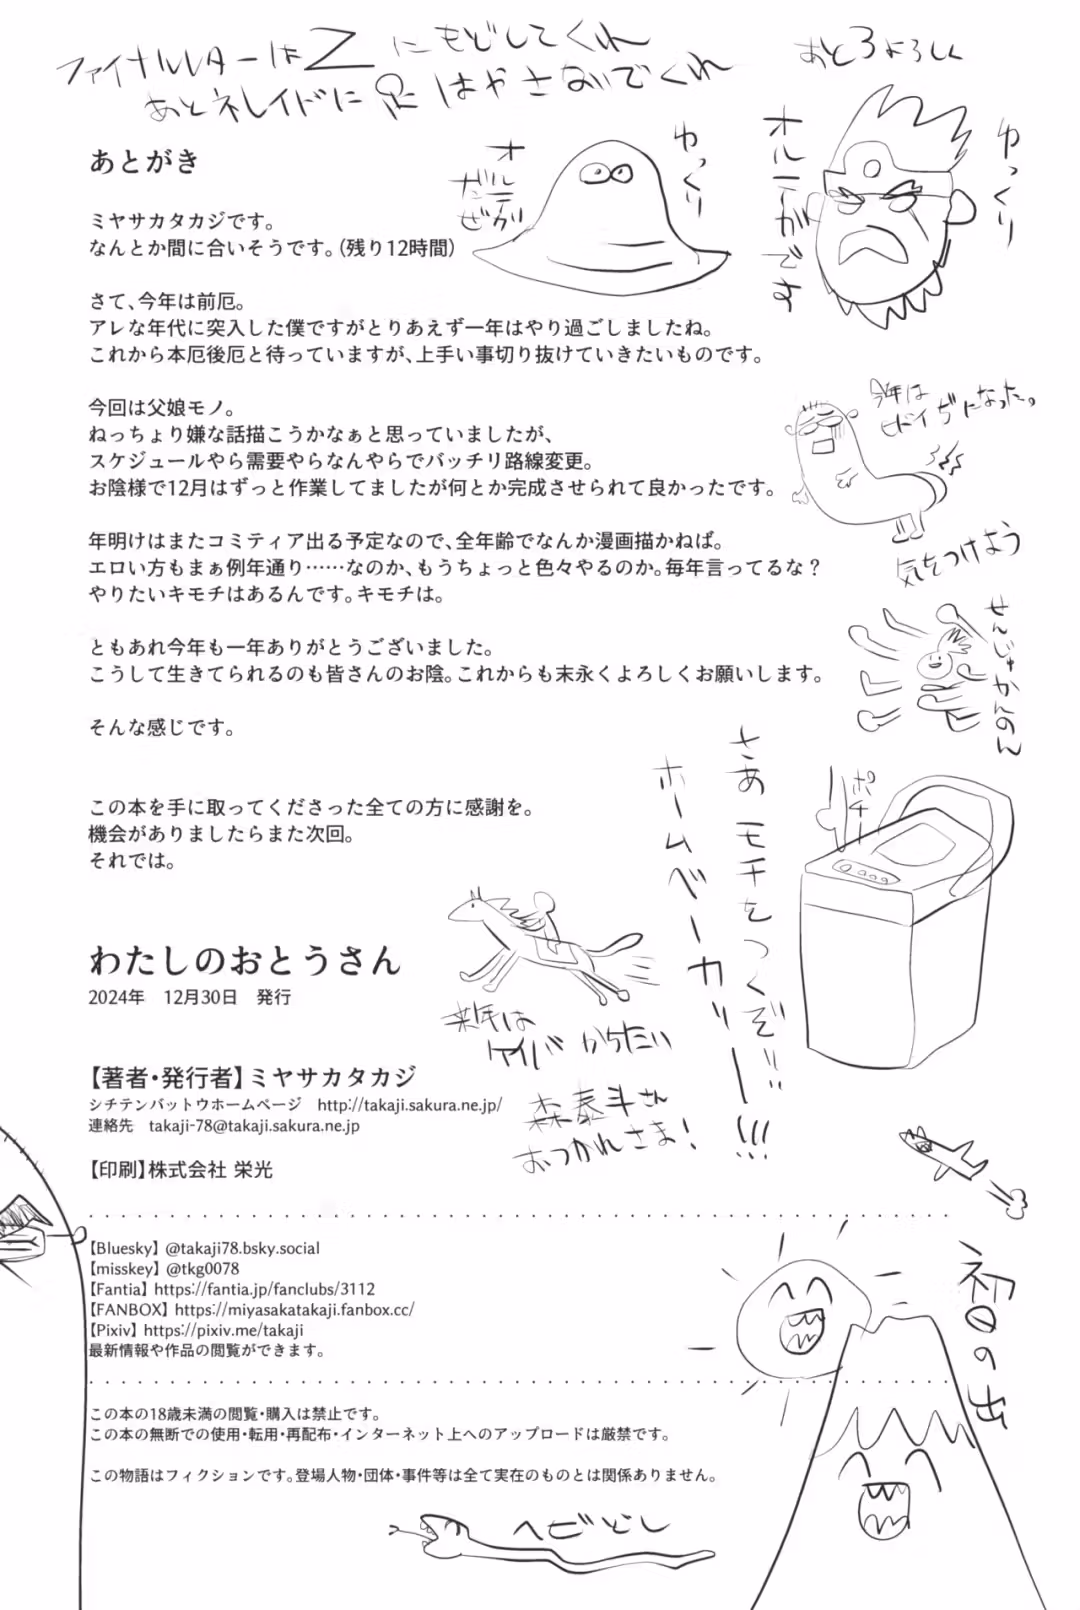 ファイナルレターはZにもどしてくれ
あとネレイドに足はやさないでくれ
あと3よろしく
ゆっくり
オルテガだぜ
ゆっくり
オルテガです
あとがき
ミヤサカタカジです。
なんとか間に合いそうです。（残り12時間）
さて、今年は前厄。
アレな年代に突入した僕ですがとりあえず一年はやり過ごしましたね。
これから本厄後厄と待っていますが、上手い事切り抜けていきたいものです。
今回は父娘モノ。
ねっちょり嫌な話描こうかなぁと思っていましたが、
スケジュールやら需要やらなんやらでバッチリ路線変更。
お陰様で12月はずっと作業してましたが何とか完成させられて良かったです。
今年は
ヒドイぢになった。
気をつけよう
年明けはまたコミティア出る予定なので、全年齢でなんか漫画描かねば。
エロい方もまぁ例年通り……なのか、もうちょっと色々やるのか。毎年言ってるな？
やりたいキモチはあるんです。キモチは。
せんじゅかんのん
ともあれ今年も一年ありがとうございました。
こうして生きてられるのも皆さんのお陰。これからも末永くよろしくお願いします。
そんな感じです。
さあ モチをつくぞ!!
ホームベーカリー!!!
ポチー
この本を手に取ってくださった全ての方に感謝を。
機会がありましたらまた次回。
それでは。
わたしのおとうさん
2024年　12月30日　発行
来年は
ケイバ かちたい
森泰斗さん
おつかれさま!
【著者・発行者】ミヤサカタカジ
シチテンバットウホームページ　http://takaji.sakura.ne.jp/
連絡先　takaji-78@takaji.sakura.ne.jp
【印刷】株式会社 栄光
【Bluesky】@takaji78.bsky.social
【misskey】@tkg0078
【Fantia】https://fantia.jp/fanclubs/3112
【FANBOX】https://miyasakatakaji.fanbox.cc/
【Pixiv】https://pixiv.me/takaji
最新情報や作品の閲覧ができます。
初日の出
この本の18歳未満の閲覧・購入は禁止です。
この本の無断での使用・転用・再配布・インターネット上へのアップロードは厳禁です。
この物語はフィクションです。登場人物・団体・事件等は全て実在のものとは関係ありません。
ヘビどし